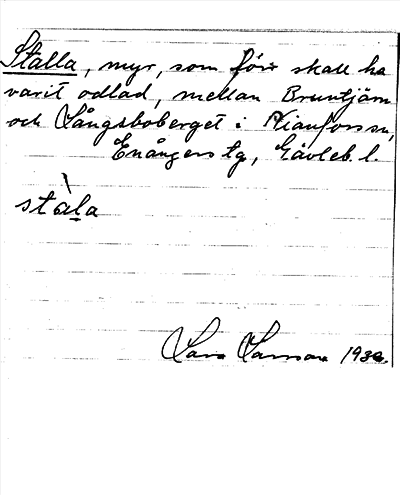 Stalla, myr, som förr skall ha
varit odlad, mellan Bruntjärn
och Långsboberget i Nianfors sn,
Enångers tg, Gävleb. l.
stàla
Lars Larsson